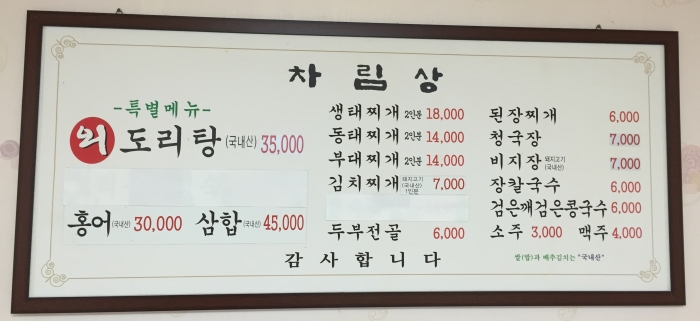 차림상
-특별메뉴-
외도리탕(국내산) 35,000
홍어(국내산) 30,000 삼합(국내산) 45,000
생태찌개 2인분 18,000
동태찌개 2인분 14,000
부대찌개 2인분 14,000
김치찌개 돼지고기(국내산)1인분 7,000
두부전골 6,000
된장찌개 6,000
청국장 7,000
비지장 돼지고기(국내산) 7,000
장칼국수 6,000
검은깨검은콩국수 6,000
소주 3,000 맥주 4,000
쌀(밥)과 배추김치는 "국내산"
감사합니다